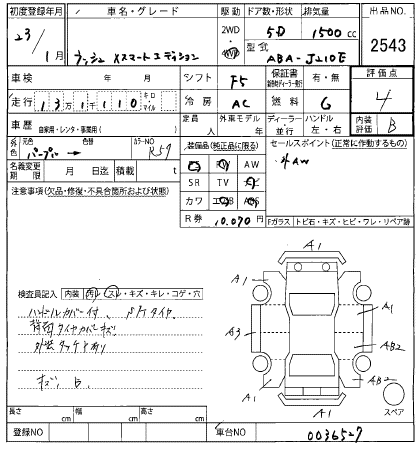 初度登録年月 車名・グレード 駆動 ドア数・形状 排気量 出品NO.
23/1月 ラッシュ Xスマートエディション 2WD 4WD 5D 1500cc 2543
型式 ABA-J210E
車検 年 月 シフト F5 保証書 有・無 評価点
走行 13万1千110 キロ マイル 冷房 AC 燃料 G 4
車歴 自家用・レンタ・事業用( ) 定員 人 外車モデル 年 ディーラー・並行 ハンドル 左・右 内装評価 B
外色 元色 パープル→ 色替 カラーNO R59 装備品(純正品に限る) セールスポイント(正常に作動するもの)
名義変更期限 月 日迄 積載 t PS PW AW 外AW
注意事項(欠品・修復・不具合箇所および状態) SR TV ナビ
カワ エアB ABS
R券 10,070円 Fガラス トビ石・キズ・ヒビ・ワレ・リペア跡
A1
A1 A1
A3 AB2
A1 AB2
A1 スペア
検査員記入 内装 汚レ・スレ・キズ・キレ・コゲ・穴
ハンドルカバー付
背面タイヤカバーキズ
外装タッチ有り
キズ、B
長さ cm 幅 cm 高さ cm
登録NO 車台NO 0036527